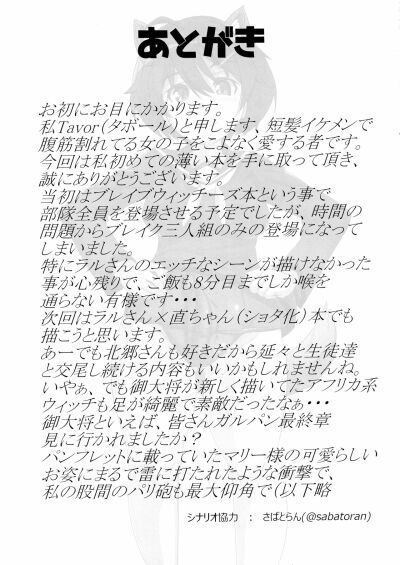 あとがき
お初にお目にかかります。
私Tavor(タボール)と申します、短髪イケメンで
腹筋割れてる女の子をこよなく愛する者です。
今回は私初めての薄い本を手に取って頂き、
誠にありがとうございます。
当初はブレイブウィッチーズ本という事で
部隊全員を登場させる予定でしたが、時間の
問題からブレイク三人組のみの登場になって
しまいました。
特にラルさんのエッチなシーンが描けなかった
事が心残りで、ご飯も8分目までしか喉を
通らない有様です・・・
次回はラルさん×直ちゃん(ショタ化)本でも
描こうと思います。
あーでも北郷さんも好きだから延々と生徒達
と交尾し続ける内容もいいかもしれませんね。
いやぁ、でも御大将が新しく描いてたアフリカ系
ウィッチも足が綺麗で素敵だったなぁ・・・
御大将といえば、皆さんガルパン最終章
見に行かれましたか？
パンフレットに載っていたマリー様の可愛らしい
お姿にまるで雷に打たれたような衝撃で、
私の股間のパリ砲も最大仰角で(以下略
シナリオ協力 ： さばとらん(@sabatoran)